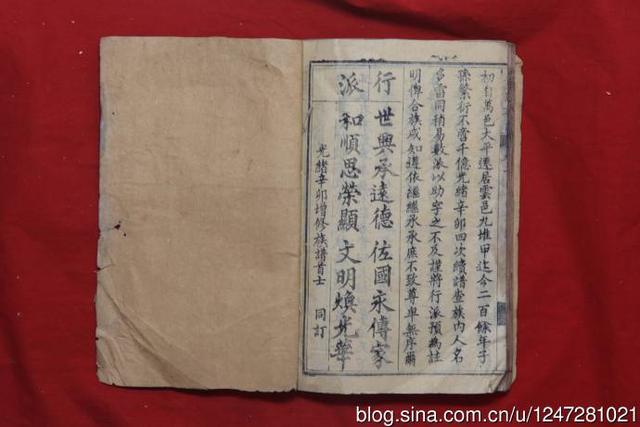 初自萬邑大平遷居雲邑九堆甲迄今二百餘年子
孫繁衍不啻千億光緒辛卯四次續譜查族內人名
多雷同稍易數派以助字之不及謹將行派預為註
明俾合族咸知遵依繼繼承承庶不致尊卑無序爾
行派
世興承遠德佐國永傳家
和順思榮顯文明煥光華
光緒辛卯增修族譜首士 同訂
blog.sina.com.cn/u/1247281021